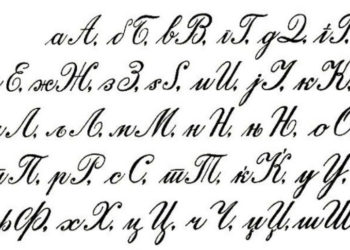 аА, бБ, вВ, гГ, дД, ѓЃ,
еЕ, жЖ, зЗ, ѕЅ, иИ, јЈ, кК,
лЛ, љЉ, мМ, нН, њЊ, оО
пП, рР, сС, тТ, ќЌ, уУ,
фФ, хХ, цЦ, чЧ, џЏ, шШ